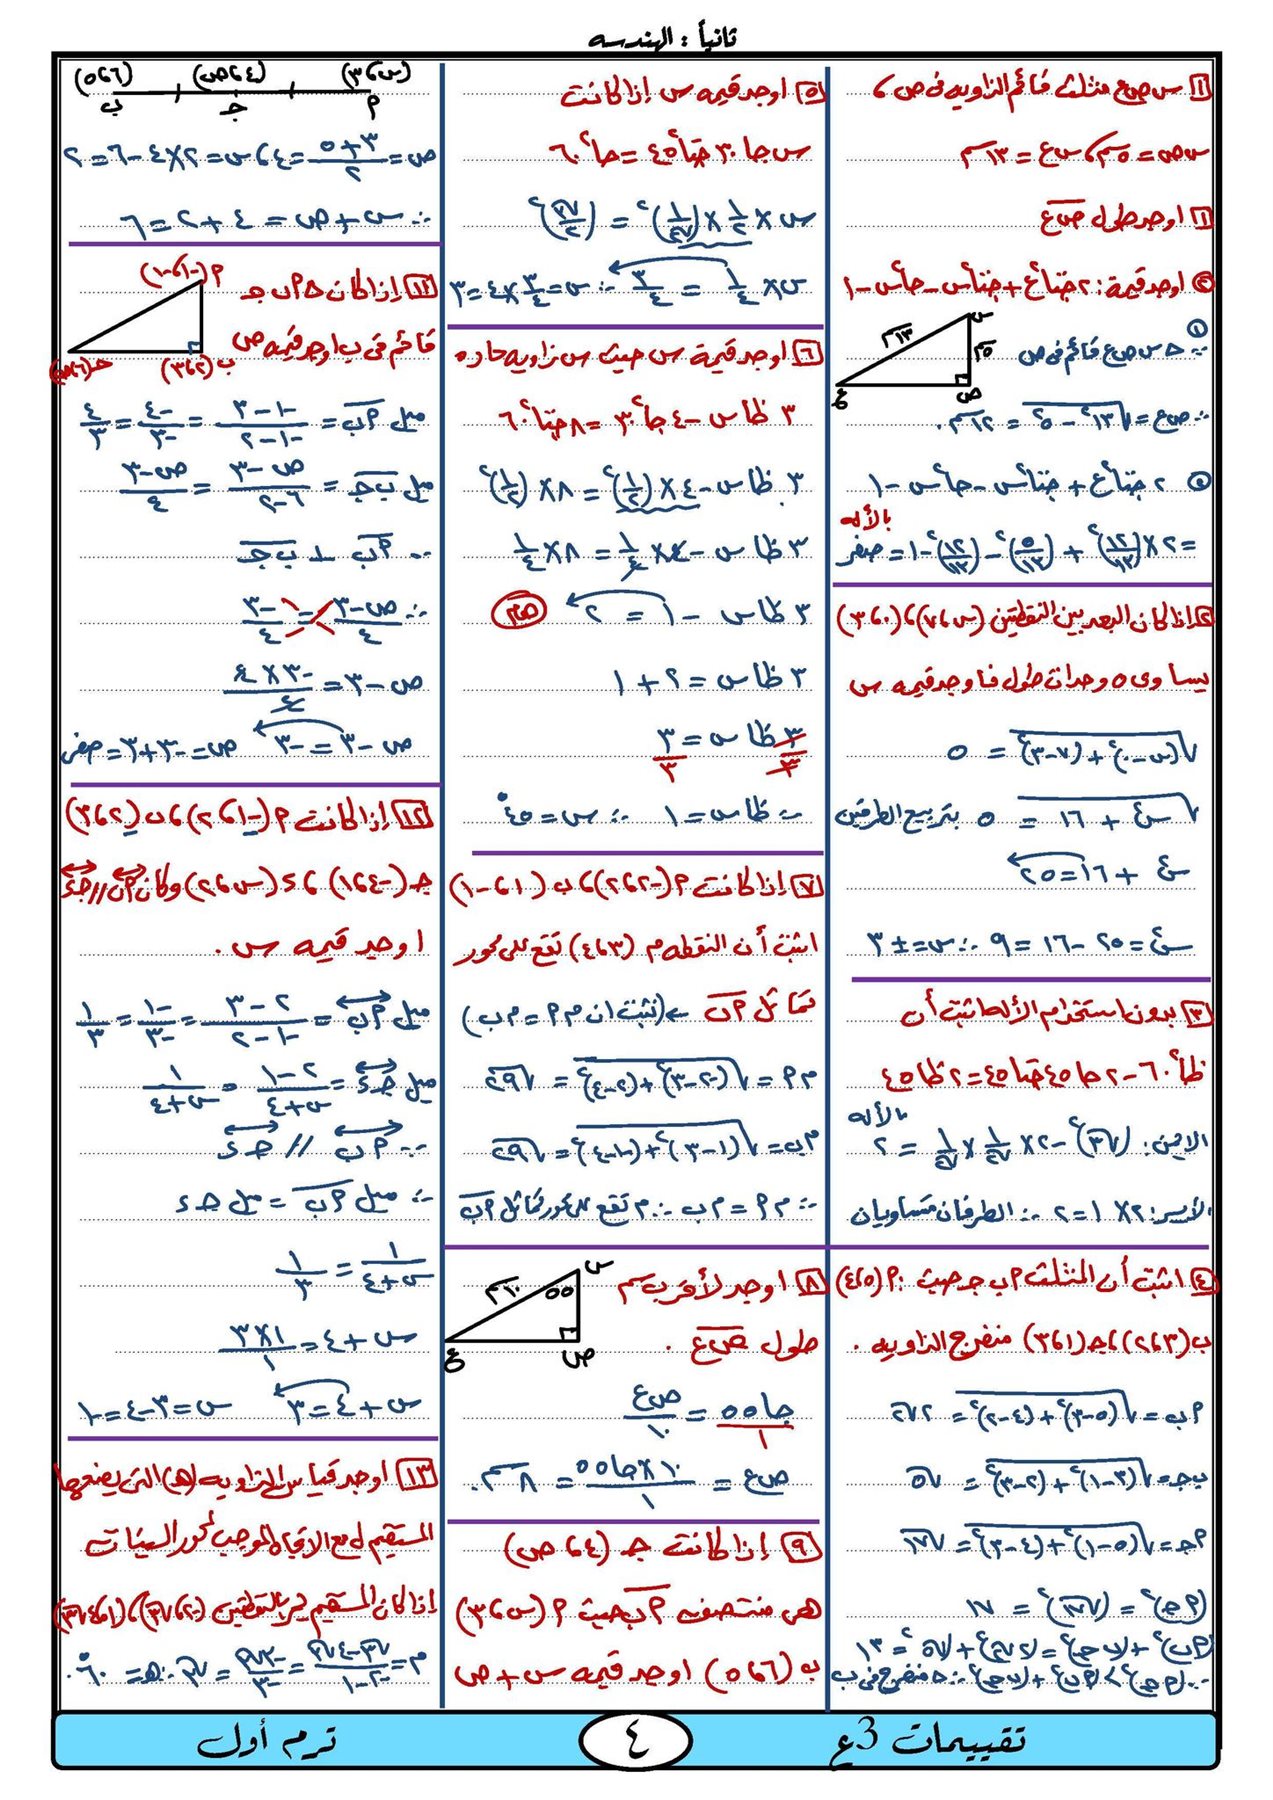 ثانياً : الهندسه
١ س ص ع مثلث قائم الزاويه فى ص ،
س ص = ٥ سم ، س ع = ١٣ سم
١ اوجد طول ص ع
٢ اوجد قيمة : ٢ جتا ع + جتا²س - جا²س - ١
∵ △ س ص ع قائم فى ص
س
١٣ سم
٥ سم
ص
ع
∴ ص ع = √(١٣² - ٥²) = ١٢ سم .
٢ ٢ جتا²ع + جتا²س - جا²س - ١
بالأله
= ٢ × (١٢/١٣)² + (٥/١٣)² - (١٢/١٣)² - ١ = صفر
٢ اذا كان البعد بين النقطتين (س ، ٧) ، (٠ ، ٣)
يساوى ٥ وحدات طول فاوجد قيمه س
√((س - ٠)² + (٧ - ٣)²) = ٥
√(س² + ١٦) = ٥ بتربيع الطرفين
س² + ١٦ = ٢٥
س² = ٢٥ - ١٦ = ٩ ∴ س = ± ٣
٣ بدون استخدام الأله اثبت أن
ظا²٦٠ - ٢ جا ٤٥ جتا ٤٥ = ٢ ظا ٤٥
بالأله
الايمن : (√٣)² - ٢ × ١/√٢ × ١/√٢ = ٢
الأيسر : ٢ × ١ = ٢ ∴ الطرفان متساويان
٤ اثبت أن المثلث م ب جـ حيث : م (٥ ، ٤)
ب (٣ ، ٢) ، جـ (١ ، ٣) منفرج الزاويه .
م ب = √((٥ - ٣)² + (٤ - ٢)²) = ٢√٢
ب جـ = √((٣ - ١)² + (٢ - ٣)²) = √٥
م جـ = √((٥ - ١)² + (٤ - ٣)²) = √١٧
(م جـ)² = (√١٧)² = ١٧
(م ب)² + (ب جـ)² = (٢√٢)² + (√٥)² = ١٣
∵ (م جـ)² > (م ب)² + (ب جـ)² ∴ △ منفرج فى ب
٥ اوجد قيمه س إذا كانت
س جا ٣٠ جتا²٤٥ = جا²٦٠
س × ١/٢ × (١/√٢)² = (√٣/٢)²
س × ١/٤ = ٣/٤ ∴ س = ٣/٤ × ٤ = ٣
٦ اوجد قيمة س حيث س زاويه حاده
٣ ظا س - ٤ جا²٣٠ = ٨ جتا²٦٠
٣ ظا س - ٤ × (١/٢)² = ٨ × (١/٢)²
٣ ظا س - ٤ × ١/٤ = ٨ × ١/٤
٣ ظا س - ١ = ٢
٣ ظا س = ٢ + ١
٣ ظا س / ٣ = ٣ / ٣
∴ ظا س = ١ ∴ س = ٤٥°
٧ إذا كانت م (-٢ ، ٢) ، ب (١ ، -١)
اثبت أن النقطه م (٣ ، ٤) تقع على محور
تماثل م ب ← (نثبت ان م م = م ب)
م م = √((-٢ - ٣)² + (٢ - ٤)²) = √٢٩
م ب = √((١ - ٣)² + (-١ - ٤)²) = √٢٩
∴ م م = م ب ∴ م تقع على محور تماثل م ب
٨ اوجد لأقرب سم
طول ص ع .
س
٥٥
١٠ سم
ص
ع
جا ٥٥ / ١ = ص ع / ١٠
ص ع = ١٠ × جا ٥٥ / ١ = ٨ سم .
٩ إذا كانت جـ (٤ ، ص)
هى منتصف م ب حيث م (س ، ٣)
ب (٦ ، ٥) اوجد قيمه س + ص
(س ، ٣) (٤ ، ص) (٦ ، ٥)
م جـ ب
ص = (٣ + ٥)/٢ = ٤ ، س = ٢ × ٤ - ٦ = ٢
∴ س + ص = ٤ + ٢ = ٦
إذا كان △ م ب جـ
قائم فى ب اوجد قيمه ص
م (-١ ، -١)
ب (٢ ، ٣)
جـ (٦ ، ص)
ميل م ب = (-١ - ٣)/(-١ - ٢) = -٤/-٣ = ٤/٣
ميل ب جـ = (ص - ٣)/(٦ - ٢) = (ص - ٣)/٤
∵ م ب ⊥ ب جـ
∴ (ص - ٣)/٤ = -٣/٤
ص - ٣ = (-٣ × ٤)/٤
ص - ٣ = -٣ ص = -٣ + ٣ = صفر
١٢ إذا كانت م (-١ ، ٢) ، ب (٢ ، ٣)
جـ (-٤ ، ١) ، ء (س ، ٢) وكان م ب // جـ ء
اوجد قيمه س .
ميل م ب = (٢ - ٣)/(-١ - ٢) = -١/-٣ = ١/٣
ميل جـ ء = (٢ - ١)/(س + ٤) = ١/(س + ٤)
∵ م ب // جـ ء
∴ ميل م ب = ميل جـ ء
١/(س + ٤) = ١/٣
س + ٤ = (١ × ٣)/١
س + ٤ = ٣ س = ٣ - ٤ = -١
١٣ أوجد قياس الزاويه (هـ) التى يصنعها
المستقيم ل مع الاتجاه الموجب لمحور السينات
إذا كان المستقيم يمر بالنقطتين (-٢ ، √٣) ، (١ ، ٤√٣)
م = (√٣ - ٤√٣)/(-٢ - ١) = -٣√٣/-٣ = √٣ ∴ هـ = ٦٠°
تقييمات 3ع
٤
ترم أول